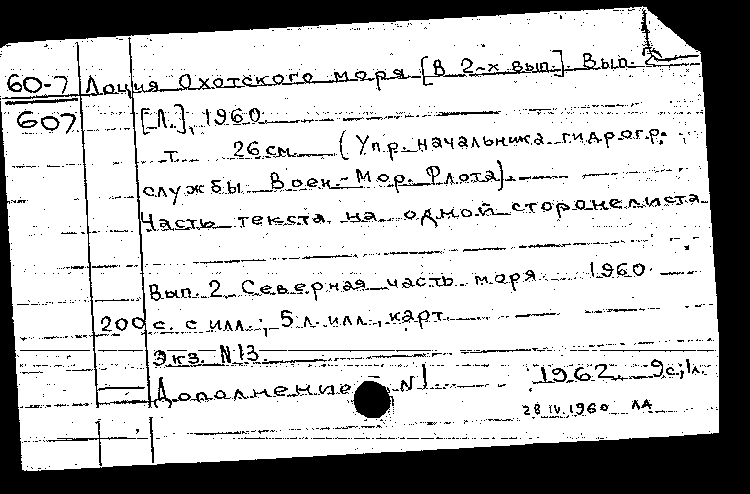 60-7 Лоция Охотского моря [В 2-х вып.]. Вып. 2
607 [Л.], 1960.
т. 26 см. (Упр. начальника гидрогр.
службы Воен.-Мор. Флота).
Часть текста на одной стороне листа
Вып. 2 Северная часть моря. 1960.
200 с. с илл.; 5 л. илл., карт.
Экз. N 13.
Дополнение N 1 1962. 9с.; 1л.
28 IV. 1960 ЛА